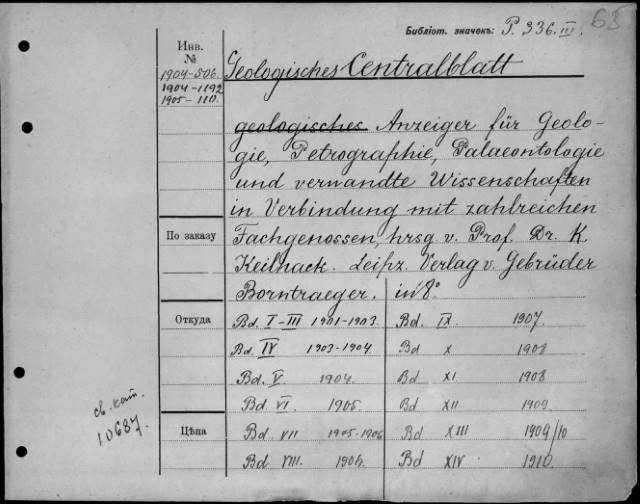 Библiот. значекъ: P. 336. III. 63
Инв.
№
1904-506.
1904-1192
1905-1111.
Geologisches Centralblatt
geologisches Anzeiger für Geolo-
gie, Petrographie, Palaeontologie
und verwandte Wissenschaften
in Verbindung mit zahlreichen
По заказу
Fachgenossen, hrsg v. Prof. Dr. K
Keilhack. Leipz. Verlag v. Gebrüder
Borntraeger. in 8°
Откуда
Bd. I-III 1901-1903.
Bd. IV 1903-1904.
Bd. V. 1904.
Bd. VI. 1905.
Цѣна
Bd. VII 1905-1906
Bd. VIII. 1906.
Bd. IX 1907.
Bd X 1908
Bd XI 1908
Bd XII 1909.
Bd XIII 1909/10
Bd XIV 1910.
св. кат.
10687.